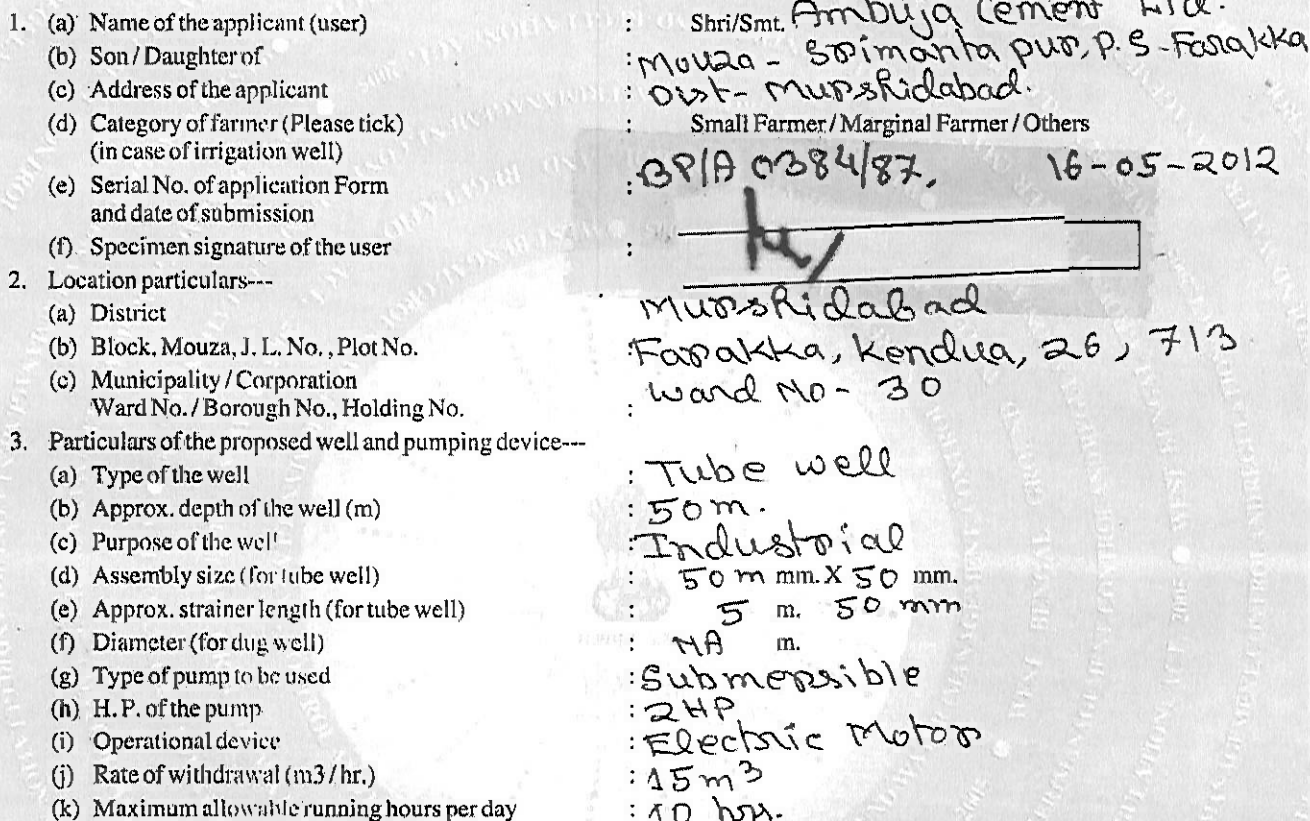 1. (a) Name of the applicant (user) : Shri/Smt. Ambuja Cement Ltd.
(b) Son / Daughter of : Mouza - Srimanta pur, P. S - Farakka
(c) Address of the applicant : Dist - Murshidabad.
(d) Category of farmer (Please tick) : Small Farmer / Marginal Farmer / Others
(in case of irrigation well)
(e) Serial No. of application Form : BP/A 0384/87, 16-05-2012
and date of submission
(f) Specimen signature of the user :
2. Location particulars---
(a) District : Murshidabad
(b) Block, Mouza, J. L. No. , Plot No. : Farakka, Kendua, 26, 713
(c) Municipality / Corporation Ward No - 30
Ward No. / Borough No., Holding No. :
3. Particulars of the proposed well and pumping device---
(a) Type of the well : Tube well
(b) Approx. depth of the well (m) : 50 m.
(c) Purpose of the well : Industrial
(d) Assembly size (for tube well) : 50 m mm. X 50 mm.
(e) Approx. strainer length (for tube well) : 5 m. 50 mm
(f) Diameter (for dug well) : NA m.
(g) Type of pump to be used : Submersible
(h) H. P. of the pump : 2 HP
(i) Operational device : Electric Motor
(j) Rate of withdrawal (m3 / hr.) : 15 m3
(k) Maximum allowable running hours per day : 10 hrs.